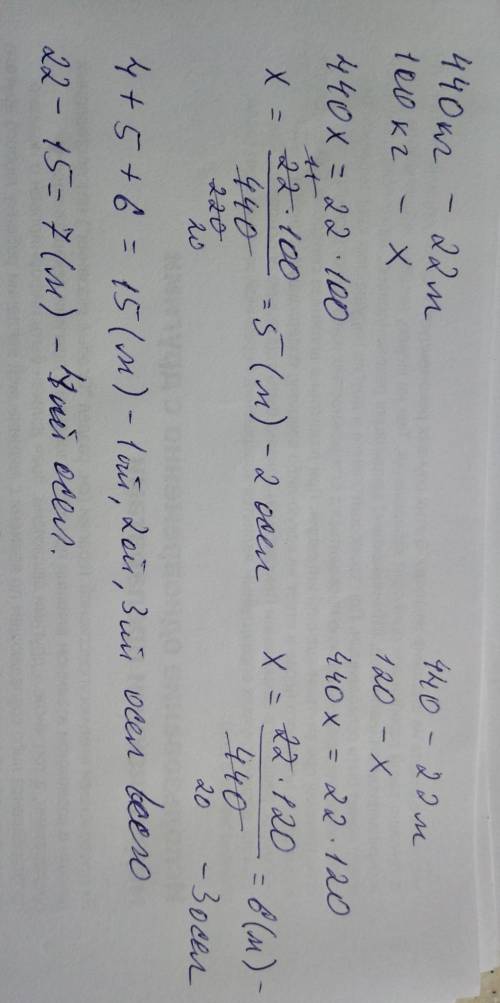 440кг - 22м
100кг - x
440x = 22 · 100
11
x = 22 · 100 / 440 = 5 (м) - 2 осел
220
20
440 - 22м
120 - x
440x = 22 · 120
x = 22 · 120 / 440 = 6 (м) -
20 - 3 осел
4 + 5 + 6 = 15 (м) - 1ой, 2ой, 3ий осел всего
22 - 15 = 7 (м) - 4ый осел.